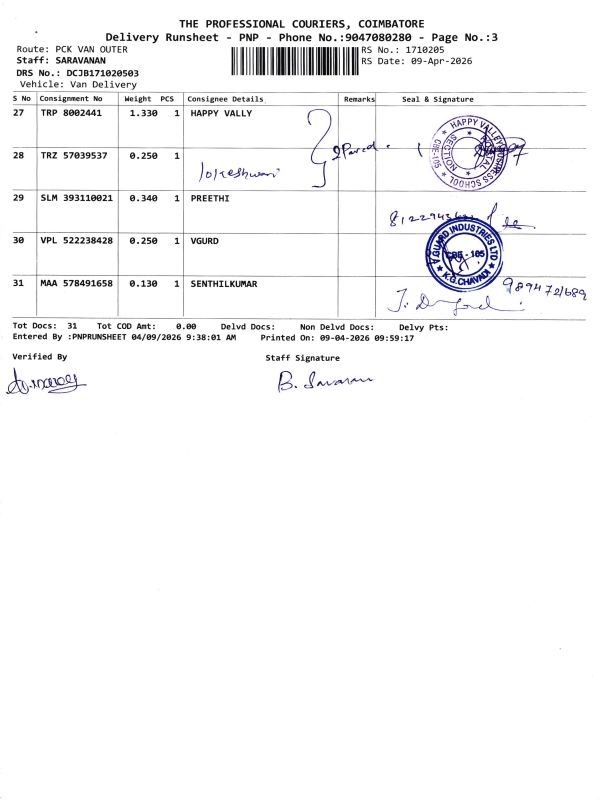 THE PROFESSIONAL COURIERS, COIMBATORE
Delivery Runsheet - PNP - Phone No.:9047080280 - Page No.:3
Route: PCK VAN OUTER
RS No.: 1710205
Staff: SARAVANAN
RS Date: 09-Apr-2026
DRS No.: DCJB171020503
Vehicle: Van Delivery
S No Consignment No Weight PCS Consignee Details Remarks Seal & Signature
27 TRP 8002441 1.330 1 HAPPY VALLY
2 Parcel
HAPPY VALLEY BUSINESS SCHOOL
POSTAL SECTION
CBE-105
28 TRZ 57039537 0.250 1
lokeshwari
29 SLM 393110021 0.340 1 PREETHI
30 VPL 522238428 0.250 1 VGURD
GUARD INDUSTRIES LTD
CBE - 105
K.G.CHAVADI
31 MAA 578491658 0.130 1 SENTHILKUMAR
Tot Docs: 31 Tot COD Amt: 0.00 Delvd Docs: Non Delvd Docs: Delvy Pts:
Entered By :PNPRUNSHEET 04/09/2026 9:38:01 AM Printed On: 09-04-2026 09:59:17
Verified By
Staff Signature
B. Saravanan